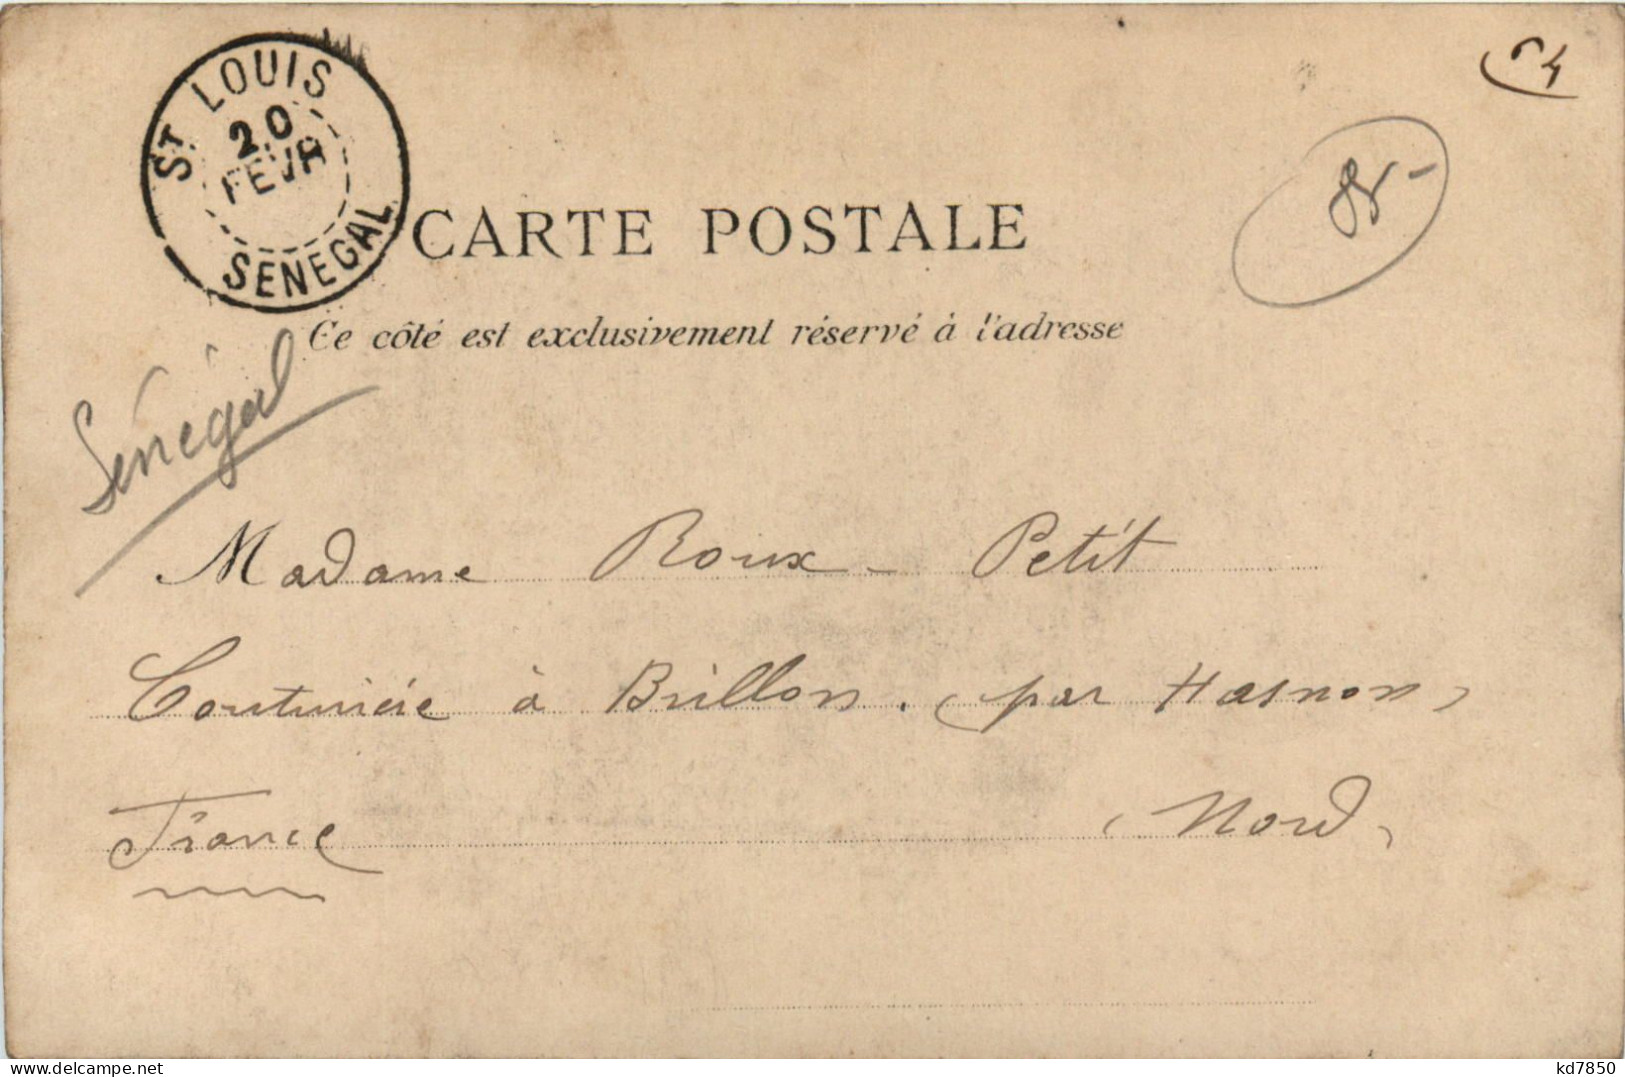 ST LOUIS
20
FEVR
SENEGAL
CARTE POSTALE
Ce côté est exclusivement réservé à l'adresse
Sénégal
Madame Roux-Petit
Couturière à Brillon. (par Hasnon)
France (Nord)
delcampe.net
kd7850